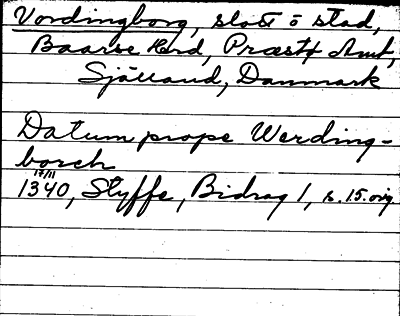 Vordingborg, slott o stad,
Baarse Herd, Præstø Amt,
Själland, Danmark
Datum prope Werding-
borch
17/11
1340, Styffe, Bidrag 1, s. 15. orig